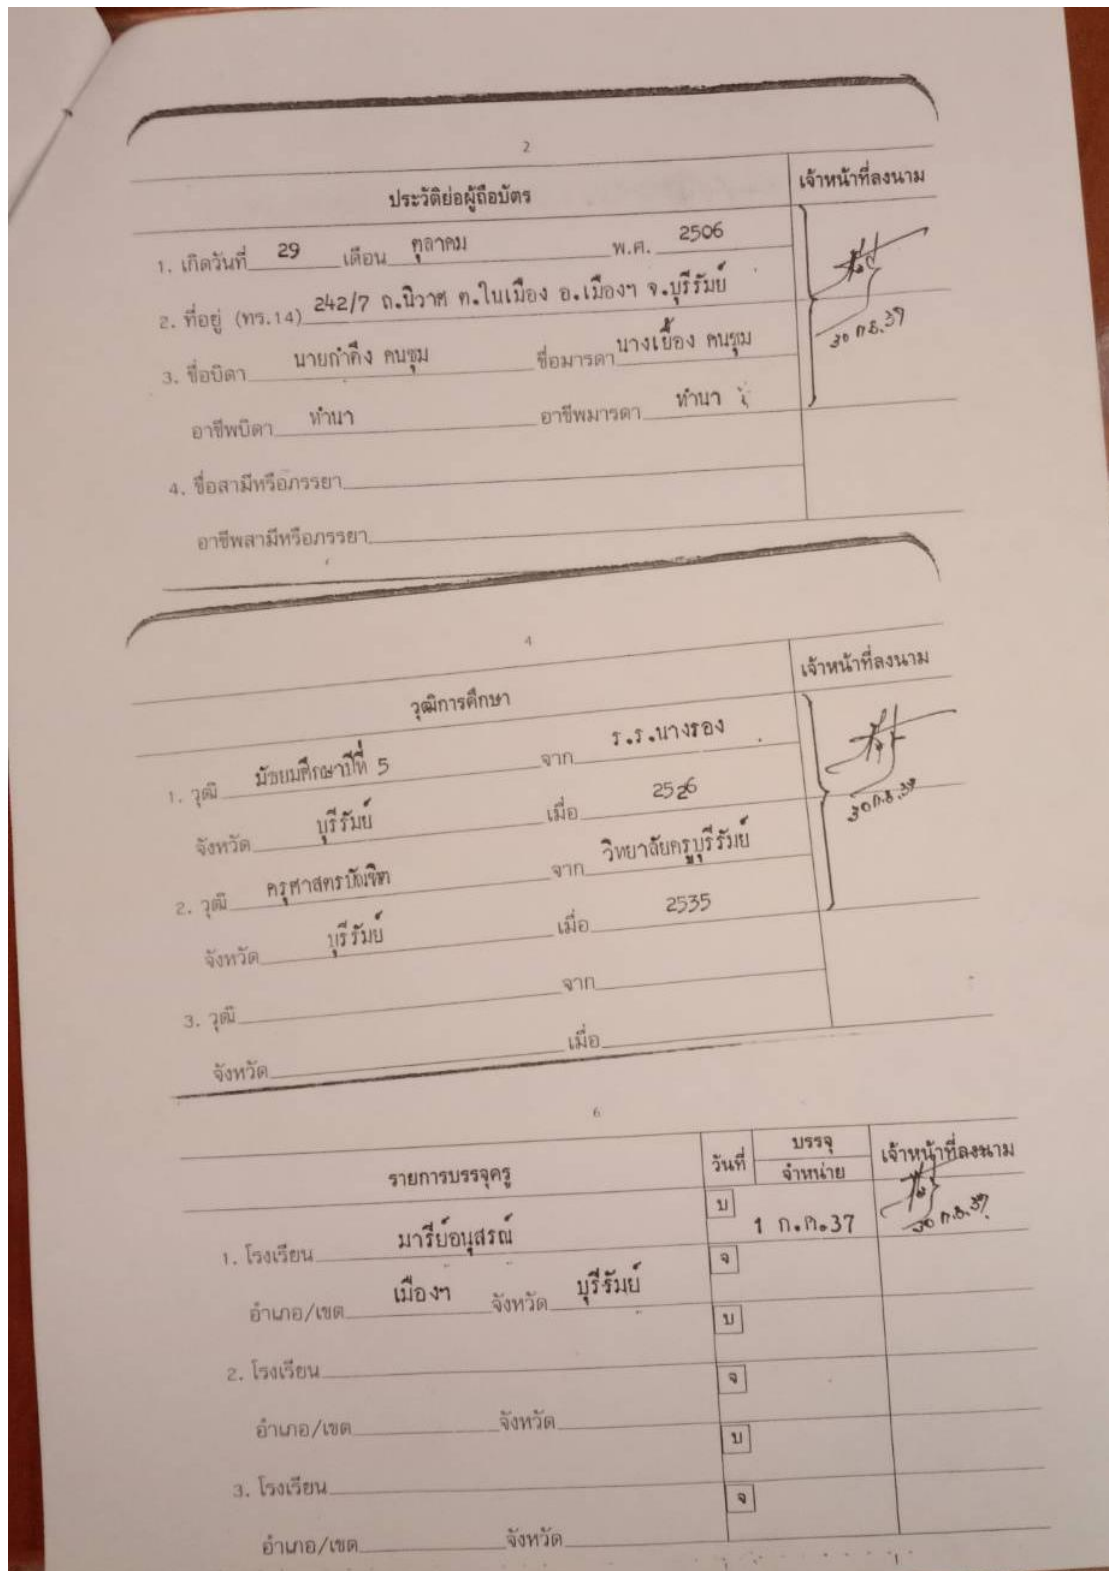 2
ประวัติย่อผู้ถือบัตร เจ้าหน้าที่ลงนาม
1. เกิดวันที่ 29 เดือน ตุลาคม พ.ศ. 2506
2. ที่อยู่ (ทร.14) 242/7 ถ.นิวาศ ต.ในเมือง อ.เมืองฯ จ.บุรีรัมย์
30 ก.ย.37
3. ชื่อบิดา นายกำคิง คนชุม ชื่อมารดา นางเยื้อง คนชุม
อาชีพบิดา ทำนา อาชีพมารดา ทำนา
4. ชื่อสามีหรือภรรยา
อาชีพสามีหรือภรรยา
4
วุฒิการศึกษา เจ้าหน้าที่ลงนาม
1. วุฒิ มัธยมศึกษาปีที่ 5 จาก ร.ร.นางรอง
จังหวัด บุรีรัมย์ เมื่อ 2526
30 ก.ย.37
2. วุฒิ ครุศาสตรบัณฑิต จาก วิทยาลัยครูบุรีรัมย์
จังหวัด บุรีรัมย์ เมื่อ 2535
3. วุฒิ จาก
จังหวัด เมื่อ
6
รายการบรรจุครู วันที่ บรรจุ จำหน่าย เจ้าหน้าที่ลงนาม
1. โรงเรียน มารีย์อนุสรณ์ บ 1 ก.ค.37 30 ก.ย.37
อำเภอ/เขต เมืองฯ จังหวัด บุรีรัมย์ จ
2. โรงเรียน บ
อำเภอ/เขต จังหวัด จ
3. โรงเรียน บ
อำเภอ/เขต จังหวัด จ